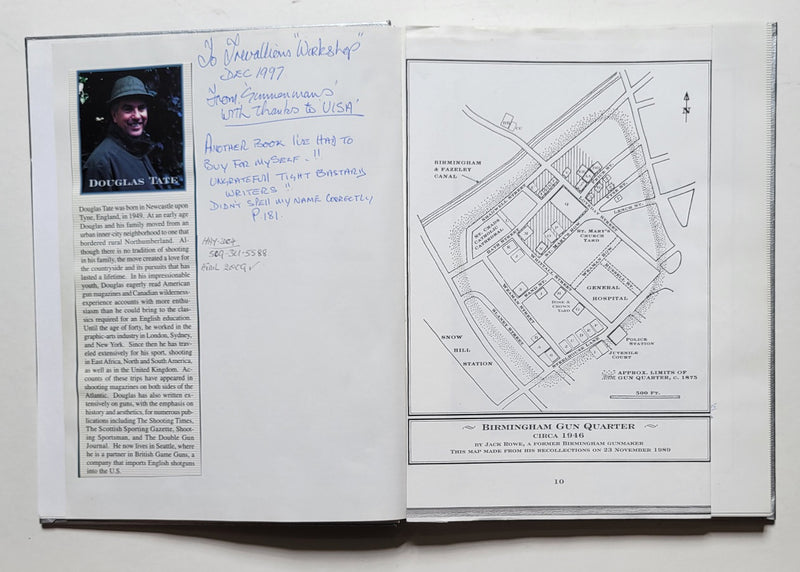 To Trevallions "Workshop"
DEC 1997
From,
'With Thanks to VISA'
ANOTHER BOOK I'VE HAD TO
BUY FOR MYSELF.!!
UNGRATEFUL TIGHT BASTARD
WRITERS!!
DIDN'T SPELL MY NAME CORRECTLY
P.181.
509-361-5588
DOUGLAS TATE
Douglas Tate was born in Newcastle upon
Tyne, England, in 1949. At an early age
Douglas and his family moved from an
urban inner-city neighborhood to one that
bordered rural Northumberland. Al-
though there is no tradition of shooting
in his family, the move created a love for
the countryside and its pursuits that has
lasted a lifetime. In his impressionable
youth, Douglas eagerly read American
gun magazines and Canadian wilderness-
experience accounts with more enthu-
siasm than he could bring to the clas-
sics required for an English education.
Until the age of forty, he worked in the
graphic-arts industry in London, Sydney,
and New York. Since then he has trav-
eled extensively for his sport, shooting
in East Africa, North and South America,
as well as in the United Kingdom. Ac-
counts of these trips have appeared in
shooting magazines on both sides of the
Atlantic. Douglas has also written ex-
tensively on guns, with the emphasis on
history and aesthetics, for numerous pub-
lications including The Shooting Times,
The Scottish Sporting Gazette, Shoot-
ing Sportsman, and The Double Gun
Journal. He now lives in Seattle, where
he is a partner in British Game Guns, a
company that imports English shotguns
into the U.S.
BIRMINGHAM
& FAZELEY
CANAL
ST. CHADS
CATHOLIC
CATHEDRAL
LENCH ST.
ST. MARY'S
CHURCH
YARD
ST. MARY'S ROW
RUSSELL ST.
GENERAL
HOSPITAL
ROSE &
CROWN
YARD
SNOW
HILL
STATION
STEELHOUSE LANE
POLICE
STATION
JUVENILE
COURT
APPROX. LIMITS OF
GUN QUARTER, C. 1875
500 FT.
N
BIRMINGHAM GUN QUARTER
CIRCA 1946
BY JACK ROWE, A FORMER BIRMINGHAM GUNMAKER
THIS MAP MADE FROM HIS RECOLLECTIONS ON 23 NOVEMBER 1989
10